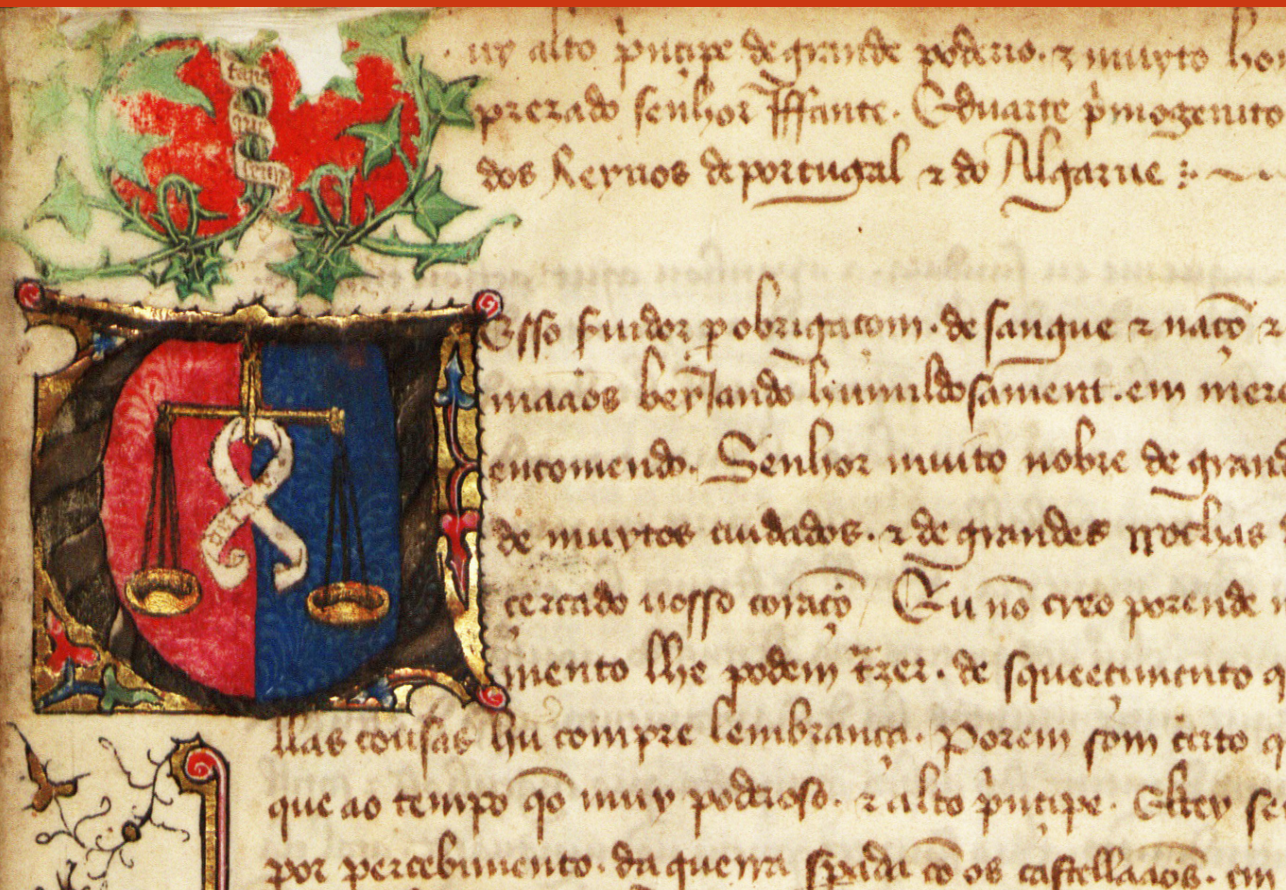 uy alto p̓ncipe de grande poderio. ⁊ muyto hon
prezado senhor Iffante. Eduarte p̓mogenito
dos Reynos de portugal ⁊ do Algarue
tan
que
sereey
Uosso s̓uidor p obrigaçom. de sangue ⁊ naçõ ⁊
maãos beyiando humildosament. em mer
encomendo. Senhor muito nobre de grand
de muytos cuidados. ⁊ de grandes
cercado uosso coraçõ Eu nõ creo porende
mento lhe podem t̃zer. de squeecimento q
llas cousas hu compre lembrança. Porem som certo q
que ao tempo q̃o muy poderoso. ⁊ alto p̓ncipe. Elrey se
por percebimento. da guerra cõ os castellaãos. em